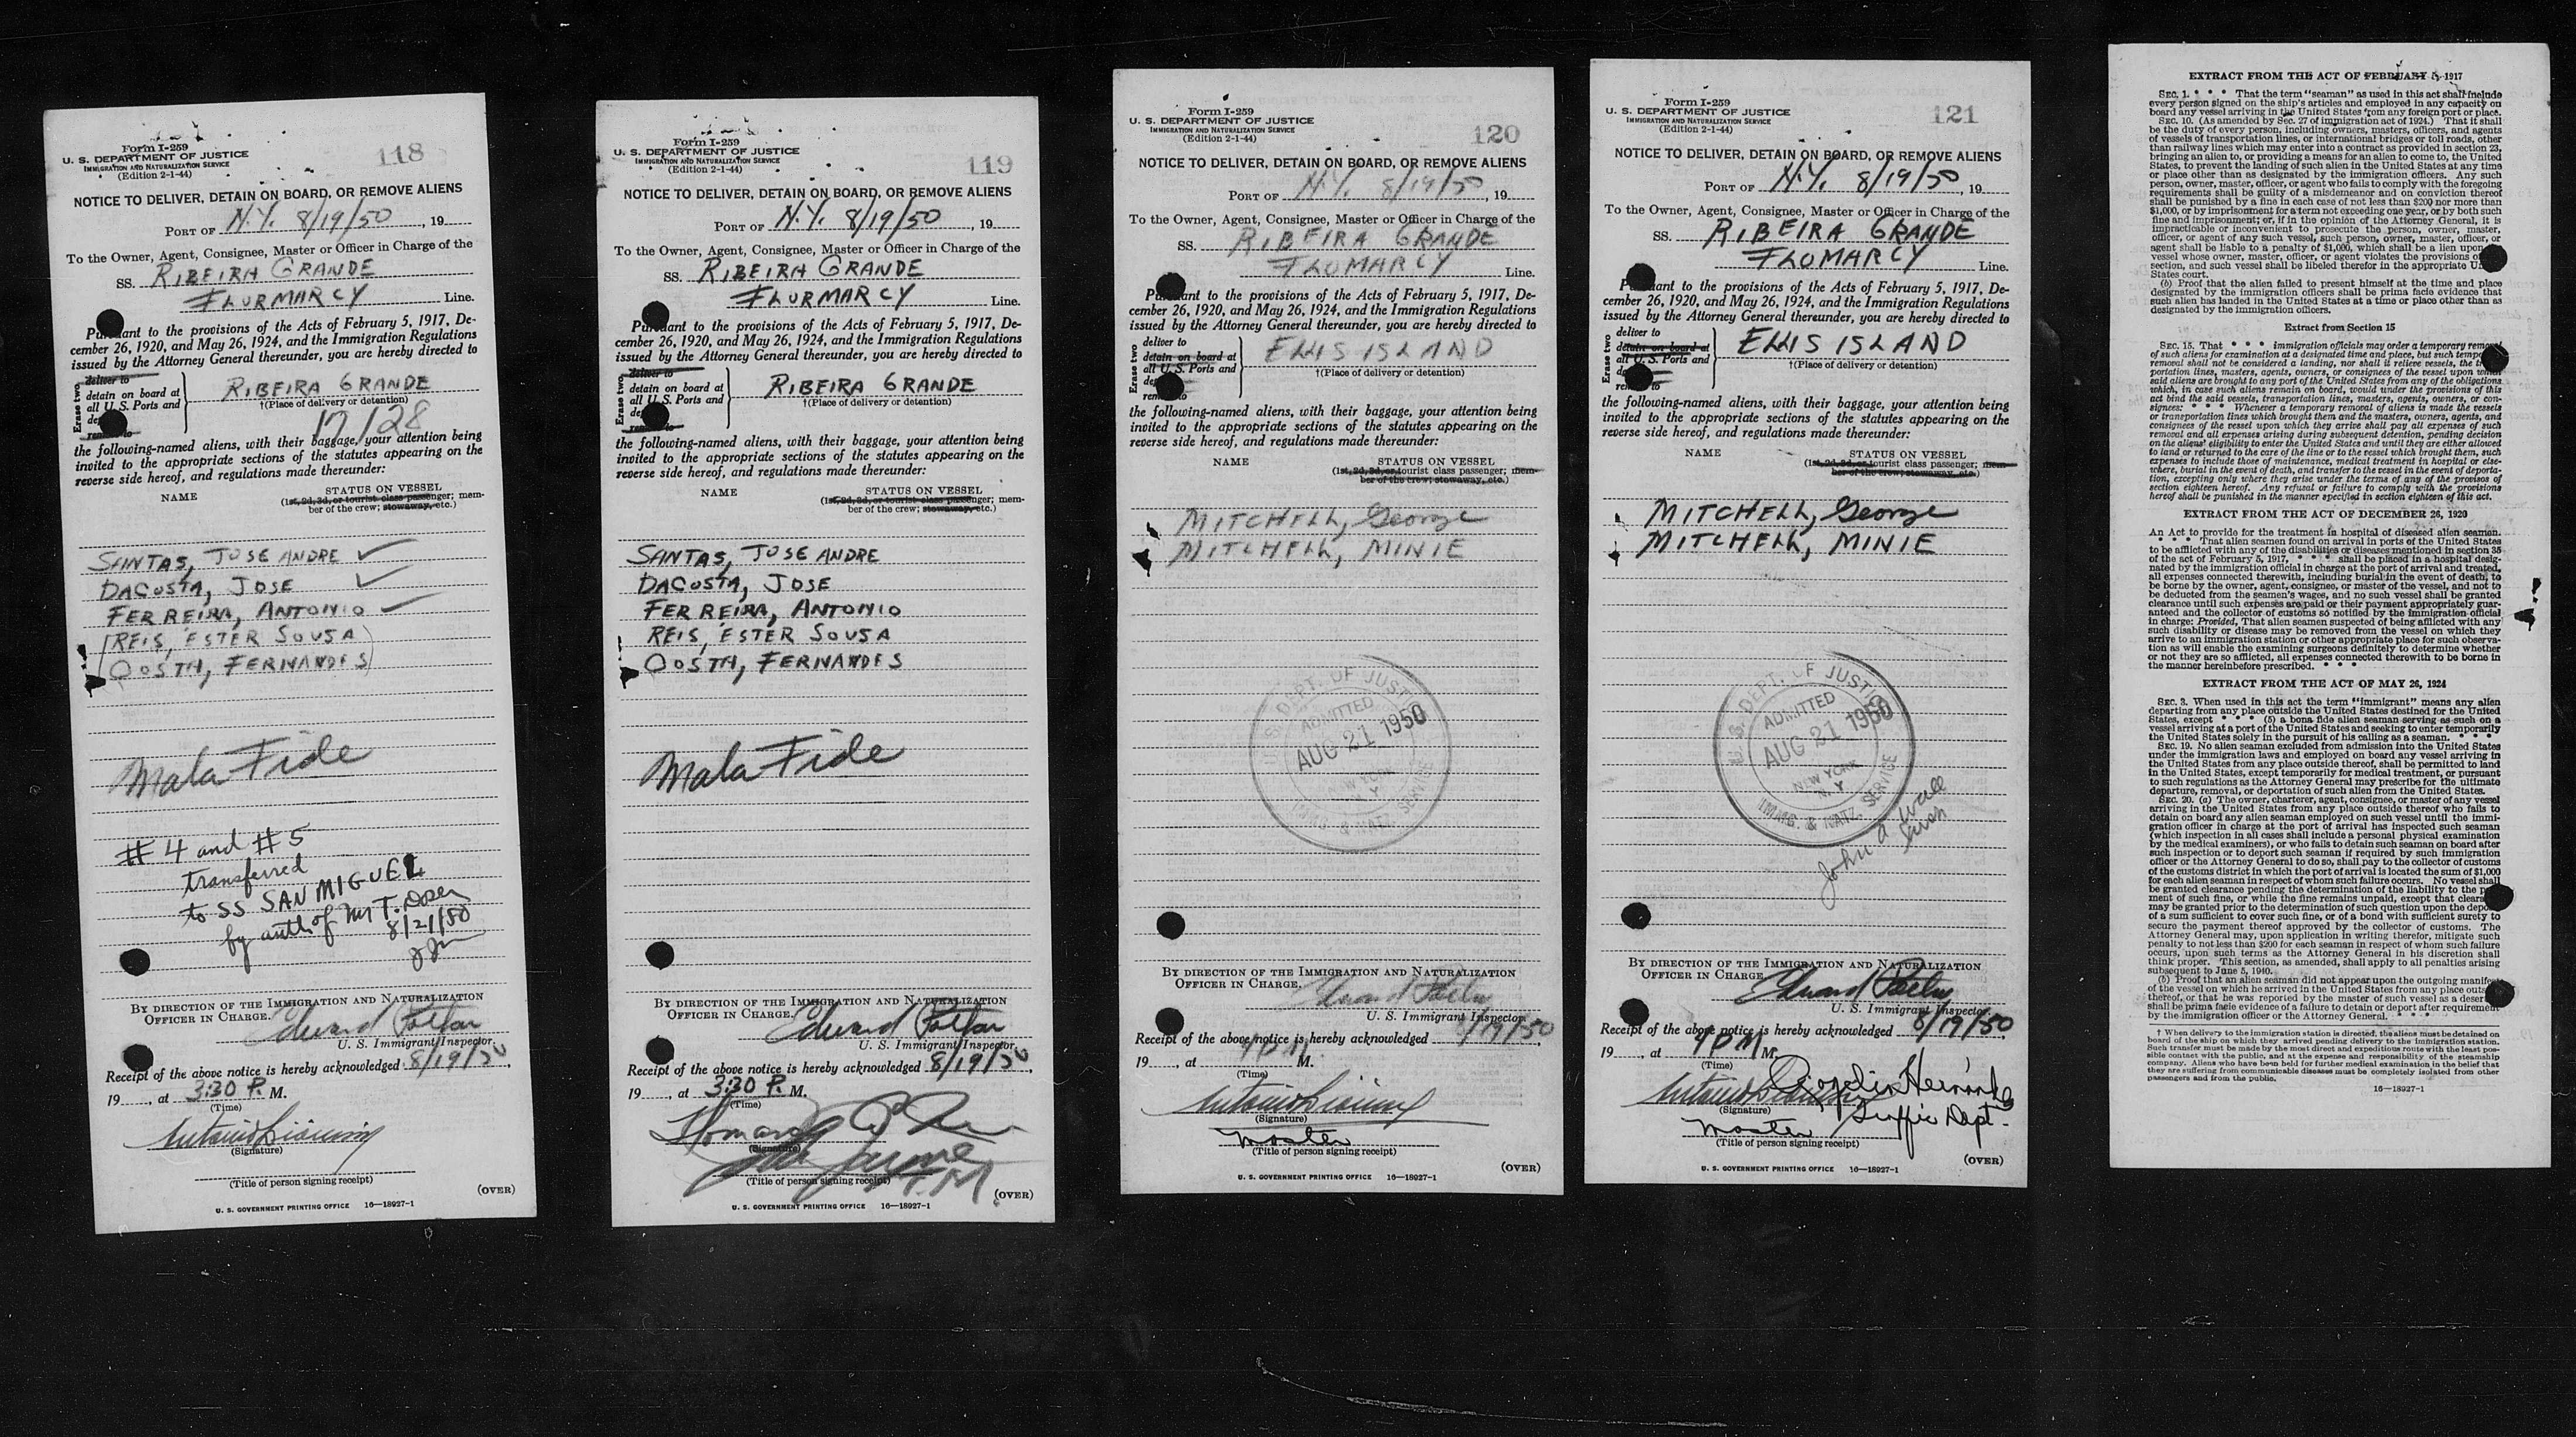 Form I-259
U. S. DEPARTMENT OF JUSTICE
IMMIGRATION AND NATURALIZATION SERVICE
(Edition 2-1-44)
118
NOTICE TO DELIVER, DETAIN ON BOARD, OR REMOVE ALIENS
PORT OF N.Y. 8/19/50, 19
To the Owner, Agent, Consignee, Master or Officer in Charge of the
SS. RIBEIRA GRANDE
FLURMARCY Line.
Pursuant to the provisions of the Acts of February 5, 1917, De-
cember 26, 1920, and May 26, 1924, and the Immigration Regulations
issued by the Attorney General thereunder, you are hereby directed to
Erase two
deliver to
detain on board at
all U. S. Ports and
remove to
RIBEIRA GRANDE
†(Place of delivery or detention)
17128
the following-named aliens, with their baggage, your attention being
invited to the appropriate sections of the statutes appearing on the
reverse side hereof, and regulations made thereunder:
NAME STATUS ON VESSEL
(1st, 2d, 3d, or tourist class passenger; mem-
ber of the crew; stowaway, etc.)
SANTAS, JOSE ANDRE
DACOSTA, JOSE
FERREIRA, ANTONIO
(REIS, ESTER SOUSA)
OOSTA, FERNANDES
Mala Fide
# 4 and # 5
transferred
to SS SAN MIGUEL
by auth of Mr T.
8/21/50
BY DIRECTION OF THE IMMIGRATION AND NATURALIZATION
OFFICER IN CHARGE.
Edward
U. S. Immigrant Inspector.
Receipt of the above notice is hereby acknowledged 8/19/50,
19, at 3:30 P. M.
(Time)
(Signature)
(Title of person signing receipt)
(OVER)
U. S. GOVERNMENT PRINTING OFFICE 16—18927-1
Form I-259
U. S. DEPARTMENT OF JUSTICE
IMMIGRATION AND NATURALIZATION SERVICE
(Edition 2-1-44)
119
NOTICE TO DELIVER, DETAIN ON BOARD, OR REMOVE ALIENS
PORT OF N.Y. 8/19/50, 19
To the Owner, Agent, Consignee, Master or Officer in Charge of the
SS. RIBEIRA GRANDE
FLURMARCY Line.
Pursuant to the provisions of the Acts of February 5, 1917, De-
cember 26, 1920, and May 26, 1924, and the Immigration Regulations
issued by the Attorney General thereunder, you are hereby directed to
Erase two
deliver to
detain on board at
all U. S. Ports and
RIBEIRA GRANDE
†(Place of delivery or detention)
the following-named aliens, with their baggage, your attention being
invited to the appropriate sections of the statutes appearing on the
reverse side hereof, and regulations made thereunder:
NAME STATUS ON VESSEL
(1st, 2d, 3d, or tourist class passenger; mem-
ber of the crew; stowaway, etc.)
SANTAS, JOSE ANDRE
DACOSTA, JOSE
FERREIRA, ANTONIO
REIS, ESTER SOUSA
OOSTA, FERNANDES
Mala Fide
BY DIRECTION OF THE IMMIGRATION AND NATURALIZATION
OFFICER IN CHARGE.
Edward
U. S. Immigrant Inspector.
Receipt of the above notice is hereby acknowledged 8/19/50,
19, at 3:30 P. M.
(Time)
(Signature)
(Title of person signing receipt)
(OVER)
U. S. GOVERNMENT PRINTING OFFICE 16—18927-1
Form I-259
U. S. DEPARTMENT OF JUSTICE
IMMIGRATION AND NATURALIZATION SERVICE
(Edition 2-1-44)
120
NOTICE TO DELIVER, DETAIN ON BOARD, OR REMOVE ALIENS
PORT OF N.Y. 8/19/50, 19
To the Owner, Agent, Consignee, Master or Officer in Charge of the
SS. RIBEIRA GRANDE
FLOMARCY Line.
Pursuant to the provisions of the Acts of February 5, 1917, De-
cember 26, 1920, and May 26, 1924, and the Immigration Regulations
issued by the Attorney General thereunder, you are hereby directed to
Erase two
deliver to
detain on board at
all U. S. Ports and
ELLIS ISLAND
†(Place of delivery or detention)
the following-named aliens, with their baggage, your attention being
invited to the appropriate sections of the statutes appearing on the
reverse side hereof, and regulations made thereunder:
NAME STATUS ON VESSEL
(1st, 2d, 3d, or tourist class passenger; mem-
ber of the crew; stowaway, etc.)
MITCHELL, George
MITCHELL, MINIE
U. S. DEPT. OF JUSTICE
ADMITTED
AUG 21 1950
NEW YORK
N. Y.
IMMG. & NATZ. SERVICE
BY DIRECTION OF THE IMMIGRATION AND NATURALIZATION
OFFICER IN CHARGE.
Edward
U. S. Immigrant Inspector.
Receipt of the above notice is hereby acknowledged 8/19/50
19, at 4 PM M.
(Time)
(Signature)
Master
(Title of person signing receipt)
(OVER)
U. S. GOVERNMENT PRINTING OFFICE 16—18927-1
Form I-259
U. S. DEPARTMENT OF JUSTICE
IMMIGRATION AND NATURALIZATION SERVICE
(Edition 2-1-44)
121
NOTICE TO DELIVER, DETAIN ON BOARD, OR REMOVE ALIENS
PORT OF N.Y. 8/19/50, 19
To the Owner, Agent, Consignee, Master or Officer in Charge of the
SS. RIBEIRA GRANDE
FLOMARCY Line.
Pursuant to the provisions of the Acts of February 5, 1917, De-
cember 26, 1920, and May 26, 1924, and the Immigration Regulations
issued by the Attorney General thereunder, you are hereby directed to
Erase two
deliver to
detain on board at
all U. S. Ports and
ELLIS ISLAND
†(Place of delivery or detention)
the following-named aliens, with their baggage, your attention being
invited to the appropriate sections of the statutes appearing on the
reverse side hereof, and regulations made thereunder:
NAME STATUS ON VESSEL
(1st, 2d, 3d, or tourist class passenger; mem-
ber of the crew, stowaway, etc.)
MITCHELL, George
MITCHELL, MINIE
U. S. DEPT. OF JUSTICE
ADMITTED
AUG 21 1950
NEW YORK
N. Y.
IMMG. & NATZ. SERVICE
John a Wall
BY DIRECTION OF THE IMMIGRATION AND NATURALIZATION
OFFICER IN CHARGE
Edward
U. S. Immigrant Inspector.
Receipt of the above notice is hereby acknowledged 8/19/50
19, at 4 PM M.
(Time)
Rogelio Hernández
(Signature)
Traffic Dept.
Master
(Title of person signing receipt)
(OVER)
U. S. GOVERNMENT PRINTING OFFICE 16—18927-1
EXTRACT FROM THE ACT OF FEBRUARY 5, 1917
SEC. 1. * * * That the term "seaman" as used in this act shall include
every person signed on the ship's articles and employed in any capacity on
board any vessel arriving in the United States from any foreign port or place.
SEC. 10. (As amended by Sec. 27 of immigration act of 1924.) That it shall
be the duty of every person, including owners, masters, officers, and agents
of vessels of transportation lines, or international bridges or toll roads, other
than railway lines which may enter into a contract as provided in section 23,
bringing an alien to, or providing a means for an alien to come to, the United
States, to prevent the landing of such alien in the United States at any time
or place other than as designated by the immigration officers. Any such
person, owner, master, officer, or agent who fails to comply with the foregoing
requirements shall be guilty of a misdemeanor and on conviction thereof
shall be punished by a fine in each case of not less than $200 nor more than
$1,000, or by imprisonment for a term not exceeding one year, or by both such
fine and imprisonment; or, if in the opinion of the Attorney General, it is
impracticable or inconvenient to prosecute the person, owner, master,
officer, or agent of any such vessel, such person, owner, master, officer, or
agent shall be liable to a penalty of $1,000, which shall be a lien upon
vessel whose owner, master, officer, or agent violates the provisions of
section, and such vessel shall be libeled therefor in the appropriate U
States court.
(b) Proof that the alien failed to present himself at the time and place
designated by the immigration officers shall be prima facie evidence that
such alien has landed in the United States at a time or place other than as
designated by the immigration officers.
Extract from Section 15
SEC. 15. That * * * immigration officials may order a temporary removal
of such aliens for examination at a designated time and place, but such temporary
removal shall not be considered a landing, nor shall it relieve vessels, the trans-
portation lines, masters, agents, owners, or consignees of the vessel upon which
said aliens are brought to any port of the United States from any of the obligations
which, in case such aliens remain on board, would under the provisions of this
act bind the said vessels, transportation lines, masters, agents, owners, or con-
signees: * * * Whenever a temporary removal of aliens is made the vessels
or transportation lines which brought them and the masters, owners, agents, and
consignees of the vessel upon which they arrive shall pay all expenses of such
removal and all expenses arising during subsequent detention, pending decision
on the aliens' eligibility to enter the United States and until they are either allowed
to land or returned to the care of the line or to the vessel which brought them, such
expenses to include those of maintenance, medical treatment in hospital or else-
where, burial in the event of death, and transfer to the vessel in the event of deporta-
tion, excepting only where they arise under the terms of any of the provisos of
section eighteen hereof. Any refusal or failure to comply with the provisions
hereof shall be punished in the manner specified in section eighteen of this act.
EXTRACT FROM THE ACT OF DECEMBER 26, 1920
An Act to provide for the treatment in hospital of diseased alien seamen.
* * * That alien seamen found on arrival in ports of the United States
to be afflicted with any of the disabilities or diseases mentioned in section 35
of the act of February 5, 1917, * * * shall be placed in a hospital desig-
nated by the immigration official in charge at the port of arrival and treated,
all expenses connected therewith, including burial in the event of death, to
be borne by the owner, agent, consignee, or master of the vessel, and not to
be deducted from the seamen's wages, and no such vessel shall be granted
clearance until such expenses are paid or their payment appropriately guar-
anteed and the collector of customs so notified by the immigration official
in charge: Provided, That alien seamen suspected of being afflicted with any
such disability or disease may be removed from the vessel on which they
arrive to an immigration station or other appropriate place for such observa-
tion as will enable the examining surgeons definitely to determine whether
or not they are so afflicted, all expenses connected therewith to be borne in
the manner hereinbefore prescribed. * * *
EXTRACT FROM THE ACT OF MAY 26, 1924
SEC. 3. When used in this act the term "immigrant" means any alien
departing from any place outside the United States destined for the United
States, except * * * (5) a bona fide alien seaman serving as such on a
vessel arriving at a port of the United States and seeking to enter temporarily
the United States solely in the pursuit of his calling as a seaman. * * *
SEC. 19. No alien seaman excluded from admission into the United States
under the immigration laws and employed on board any vessel arriving in
the United States from any place outside thereof, shall be permitted to land
in the United States, except temporarily for medical treatment, or pursuant
to such regulations as the Attorney General may prescribe for the ultimate
departure, removal, or deportation of such alien from the United States.
SEC. 20. (a) The owner, charterer, agent, consignee, or master of any vessel
arriving in the United States from any place outside thereof who fails to
detain on board any alien seaman employed on such vessel until the immi-
gration officer in charge at the port of arrival has inspected such seaman
(which inspection in all cases shall include a personal physical examination
by the medical examiners), or who fails to detain such seaman on board after
such inspection or to deport such seaman if required by such immigration
officer or the Attorney General to do so, shall pay to the collector of customs
of the customs district in which the port of arrival is located the sum of $1,000
for each alien seaman in respect of whom such failure occurs. No vessel shall
be granted clearance pending the determination of the liability to the pay-
ment of such fine, or while the fine remains unpaid, except that clearance
may be granted prior to the determination of such question upon the deposit
of a sum sufficient to cover such fine, or of a bond with sufficient surety to
secure the payment thereof approved by the collector of customs. The
Attorney General may, upon application in writing therefor, mitigate such
penalty to not less than $200 for each seaman in respect of whom such failure
occurs, upon such terms as the Attorney General in his discretion shall
think proper. This section, as amended, shall apply to all penalties arising
subsequent to June 5, 1940.
(b) Proof that an alien seaman did not appear upon the outgoing manifest
of the vessel on which he arrived in the United States from any place outside
thereof, or that he was reported by the master of such vessel as a deserter,
shall be prima facie evidence of a failure to detain or deport after requirement
by the immigration officer or the Attorney General. * * *
† When delivery to the immigration station is directed, the aliens must be detained on
board of the ship on which they arrived pending delivery to the immigration station.
Such transfer must be made by the most direct and expeditious route with the least pos-
sible contact with the public, and at the expense and responsibility of the steamship
company. Aliens who have been held for further medical examination in the belief that
they are suffering from communicable diseases must be completely isolated from other
passengers and from the public.
16—18927-1